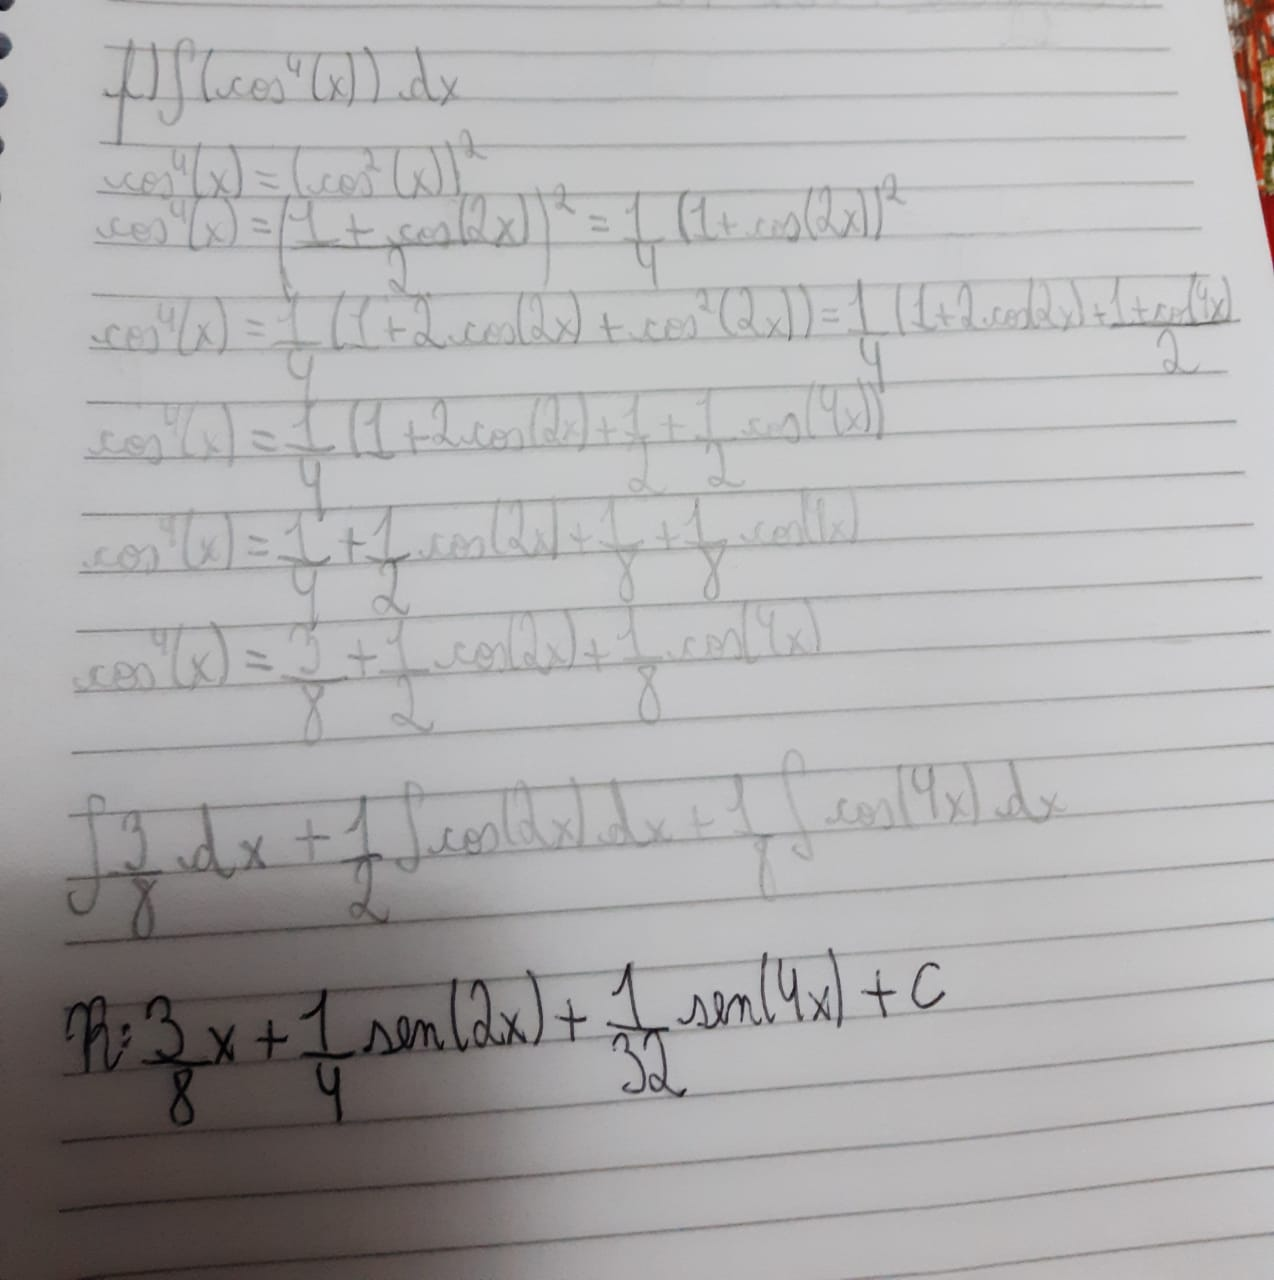 f) ∫(cos⁴(x)) dx
cos⁴(x) = (cos²(x))²
cos⁴(x) = ((1 + cos(2x))/2)² = 1/4 (1 + cos(2x))²
cos⁴(x) = 1/4 (1 + 2 cos(2x) + cos²(2x)) = 1/4 (1 + 2 cos(2x) + (1 + cos(4x))/2
cos⁴(x) = 1/4 (1 + 2 cos(2x) + 1/2 + 1/2 cos(4x))
cos⁴(x) = 1/4 + 1/2 cos(2x) + 1/8 + 1/8 cos(4x)
cos⁴(x) = 3/8 + 1/2 cos(2x) + 1/8 cos(4x)
∫ 3/8 dx + 1/2 ∫ cos(2x) dx + 1/8 ∫ cos(4x) dx
R: 3/8 x + 1/4 sen(2x) + 1/32 sen(4x) + C